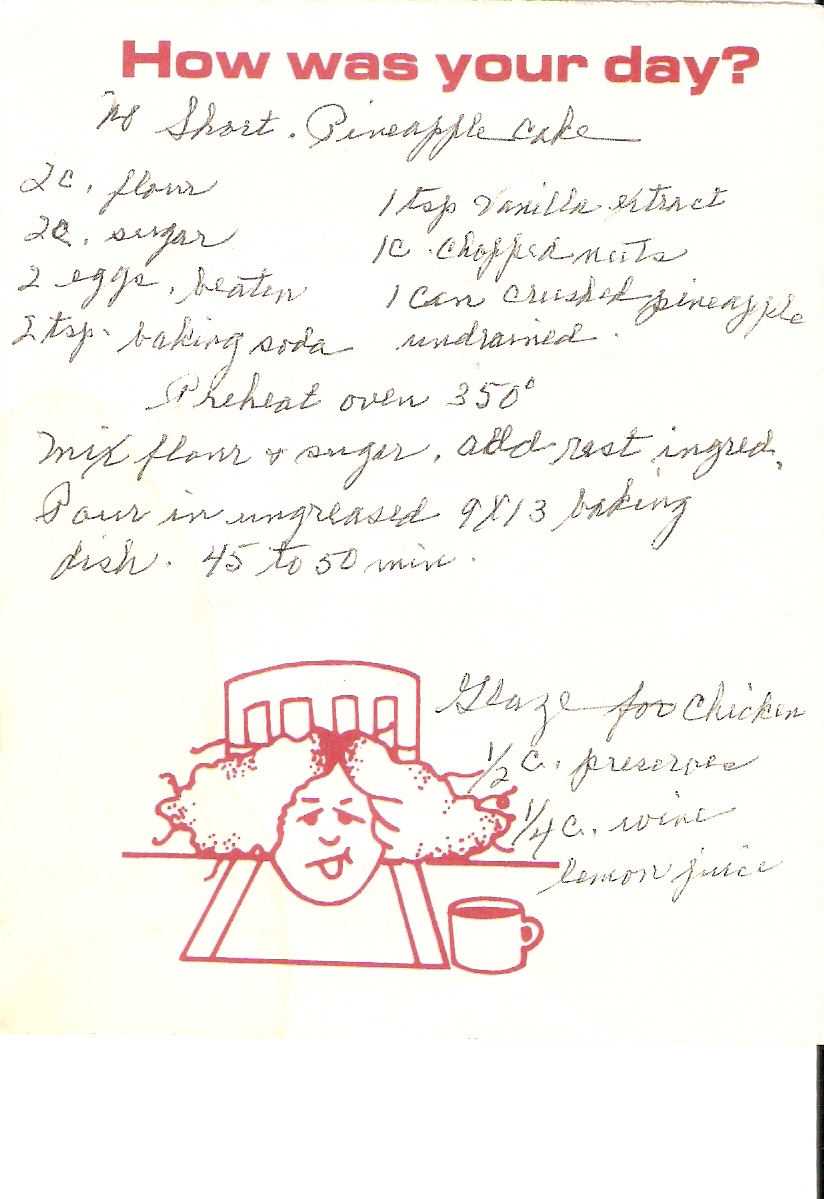 How was your day?
No Short. Pineapple Cake
2c. flour
2c. sugar
2 eggs, beaten
2 tsp. baking soda
1 tsp Vanilla extract
1c chopped nuts
1 can crushed pineapple
undrained.
Preheat oven 350°
Mix flour & sugar, add rest ingred.
Pour in ungreased 9X13 baking
dish. 45 to 50 min.
Glaze for Chicken
1/2 c. preserves
1/4 c. wine
lemon juice